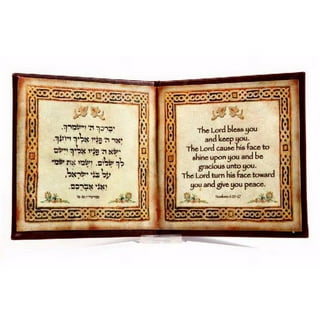 יברכך ה' וישמרך.
יאר ה' פניו אליך ויחנך.
ישא ה' פניו אליך וישם
לך שלום. ושמו את שמי
על בני ישראל,
ואני אברכם.
The Lord bless you
and keep you.
The Lord cause his face to
shine upon you and be
gracious unto you.
The Lord turn his face toward
you and give you peace.